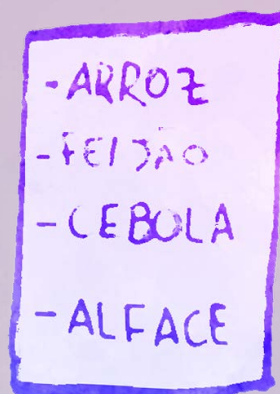 - ARROZ
- FEIJÃO
- CEBOLA
- ALFACE